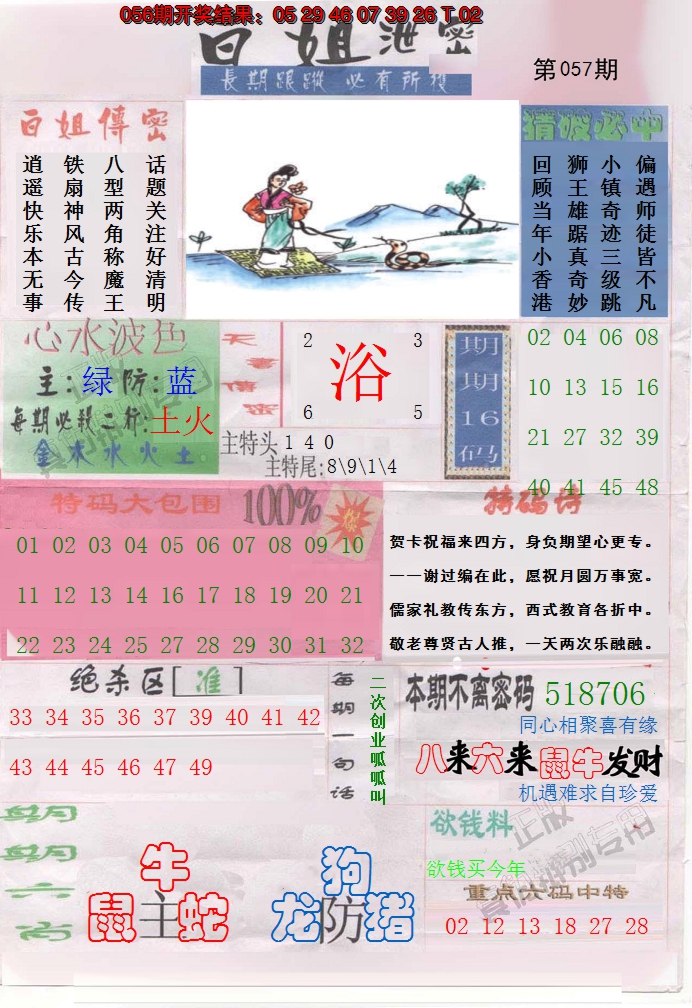 056期开奖结果：05 29 46 07 39 26 T 02
白姐泄密
第057期
長期跟蹤 必有所獲
白姐傳密
话题关注好清明
八型两角称魔王
铁扇神风古今传
逍遥快乐本无事
猜波必中
偏遇师徒皆不凡
小镇奇迹三级跳
狮王雄踞真奇妙
回顾当年小香港
心水波色
主:绿防:蓝
每期必殺二行:土火
金木水火土
天書信密
2 3
浴
6 5
主特头140
主特尾:8\9\1\4
期期16码
02 04 06 08
10 13 15 16
21 27 32 39
40 41 45 48
特码大包围 100%
01 02 03 04 05 06 07 08 09 10
11 12 13 14 16 17 18 19 20 21
22 23 24 25 27 28 29 30 31 32
特码诗
贺卡祝福来四方，身负期望心更专。
——谢过编在此，愿祝月圆万事宽。
儒家礼教传东方，西式教育各折中。
敬老尊贤古人推，一天两次乐融融。
绝杀区[准]
33 34 35 36 37 39 40 41 42
43 44 45 46 47 49
每期一句话
二次创业呱呱叫
本期不离密码 518706
同心相聚喜有缘
八来六来鼠牛发财
机遇难求自珍爱
每期六肖
牛
鼠主蛇
狗
龙防猪
欲钱料
欲钱买今年
重点六码中特
02 12 13 18 27 28